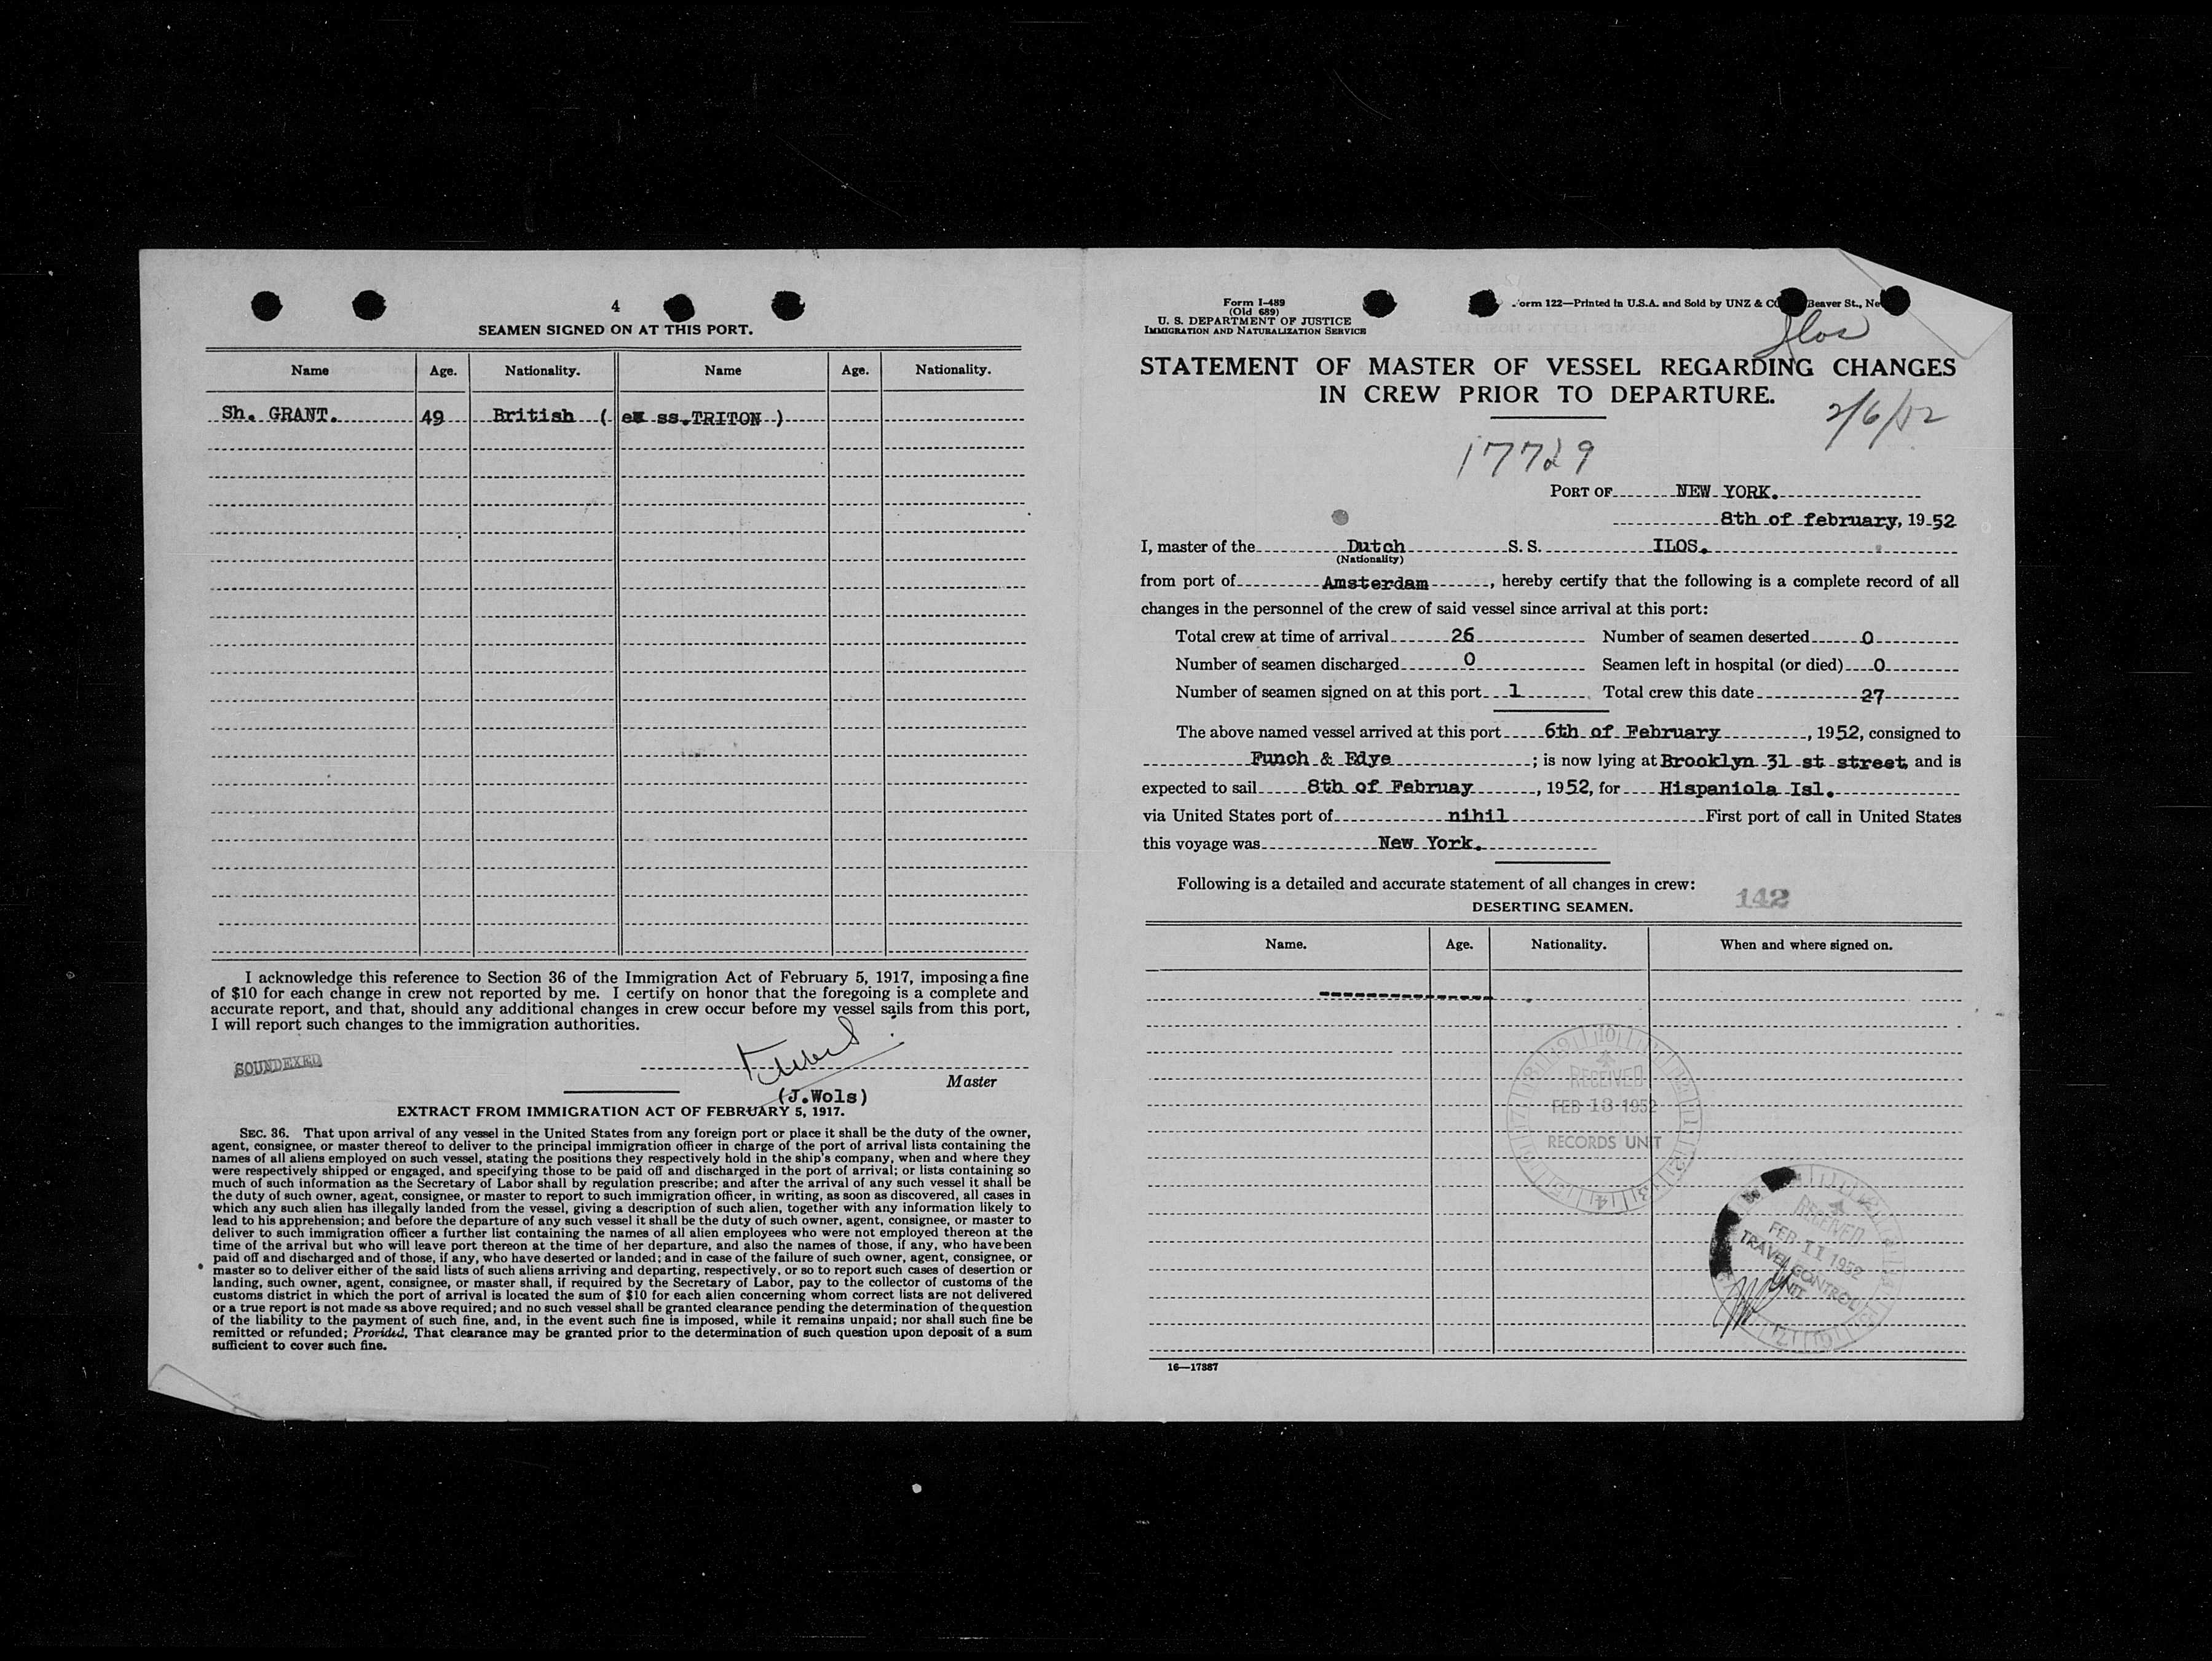 4
SEAMEN SIGNED ON AT THIS PORT.
Name Age. Nationality. Name Age. Nationality.
Sh. GRANT. 49 British ( ex ss.TRITON )
I acknowledge this reference to Section 36 of the Immigration Act of February 5, 1917, imposing a fine
of $10 for each change in crew not reported by me. I certify on honor that the foregoing is a complete and
accurate report, and that, should any additional changes in crew occur before my vessel sails from this port,
I will report such changes to the immigration authorities.
SOUNDEXED
Master
(J.Wols)
EXTRACT FROM IMMIGRATION ACT OF FEBRUARY 5, 1917.
SEC. 36. That upon arrival of any vessel in the United States from any foreign port or place it shall be the duty of the owner,
agent, consignee, or master thereof to deliver to the principal immigration officer in charge of the port of arrival lists containing the
names of all aliens employed on such vessel, stating the positions they respectively hold in the ship's company, when and where they
were respectively shipped or engaged, and specifying those to be paid off and discharged in the port of arrival; or lists containing so
much of such information as the Secretary of Labor shall by regulation prescribe; and after the arrival of any such vessel it shall be
the duty of such owner, agent, consignee, or master to report to such immigration officer, in writing, as soon as discovered, all cases in
which any such alien has illegally landed from the vessel, giving a description of such alien, together with any information likely to
lead to his apprehension; and before the departure of any such vessel it shall be the duty of such owner, agent, consignee, or master to
deliver to such immigration officer a further list containing the names of all alien employees who were not employed thereon at the
time of the arrival but who will leave port thereon at the time of her departure, and also the names of those, if any, who have been
paid off and discharged and of those, if any, who have deserted or landed; and in case of the failure of such owner, agent, consignee, or
master so to deliver either of the said lists of such aliens arriving and departing, respectively, or so to report such cases of desertion or
landing, such owner, agent, consignee, or master shall, if required by the Secretary of Labor, pay to the collector of customs of the
customs district in which the port of arrival is located the sum of $10 for each alien concerning whom correct lists are not delivered
or a true report is not made as above required; and no such vessel shall be granted clearance pending the determination of the question
of the liability to the payment of such fine, and, in the event such fine is imposed, while it remains unpaid; nor shall such fine be
remitted or refunded; Provided, That clearance may be granted prior to the determination of such question upon deposit of a sum
sufficient to cover such fine.
Form I-489
(Old 689)
U. S. DEPARTMENT OF JUSTICE
IMMIGRATION AND NATURALIZATION SERVICE
orm 122—Printed in U.S.A. and Sold by UNZ & CO Beaver St., Ne
Ilos
STATEMENT OF MASTER OF VESSEL REGARDING CHANGES
IN CREW PRIOR TO DEPARTURE.
2/6/52
17729
PORT OF NEW YORK.
8th of february, 1952
I, master of the Dutch S. S. ILOS.
(Nationality)
from port of Amsterdam, hereby certify that the following is a complete record of all
changes in the personnel of the crew of said vessel since arrival at this port:
Total crew at time of arrival 26 Number of seamen deserted 0
Number of seamen discharged 0 Seamen left in hospital (or died) 0
Number of seamen signed on at this port 1 Total crew this date 27
The above named vessel arrived at this port 6th of February, 1952, consigned to
Funch & Edye; is now lying at Brooklyn 31 st street and is
expected to sail 8th of Februay, 1952, for Hispaniola Isl.
via United States port of nihil First port of call in United States
this voyage was New York.
Following is a detailed and accurate statement of all changes in crew:
142
DESERTING SEAMEN.
Name. Age. Nationality. When and where signed on.
RECEIVED
FEB 13 1952
RECORDS UNIT
RECEIVED
FEB 11 1952
TRAVEL CONTROL
UNIT
16—17387